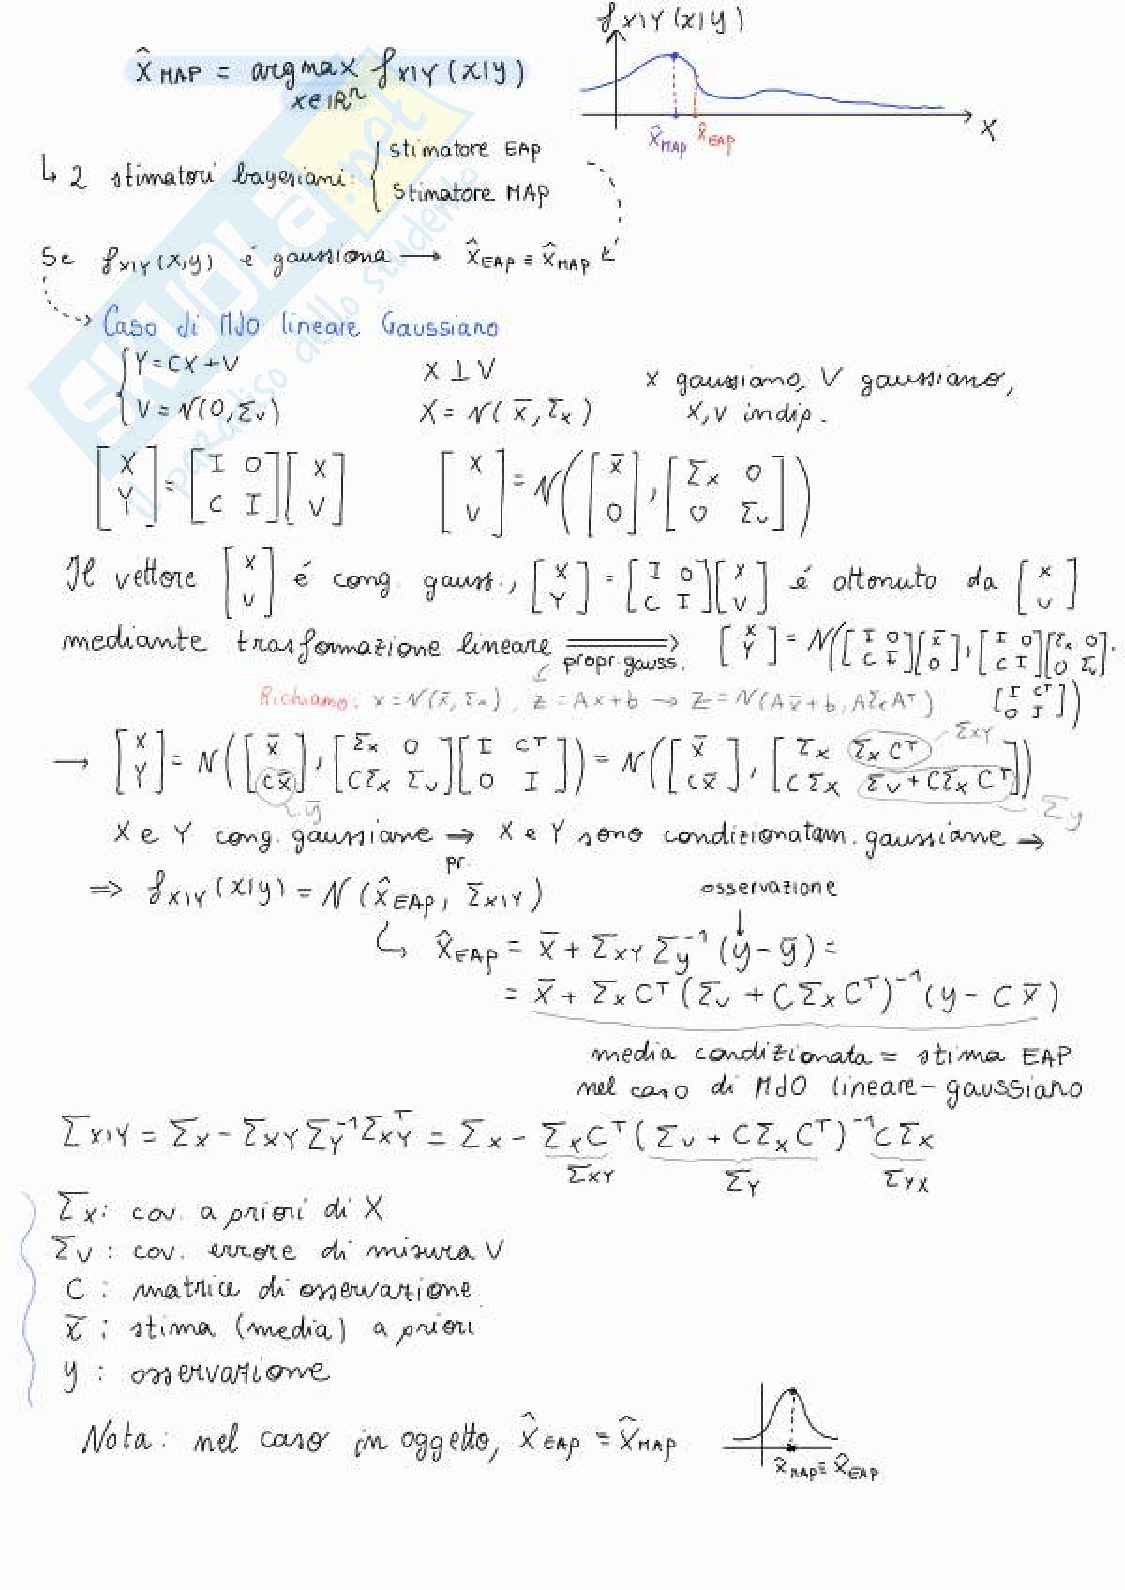 f_{X|Y}(x|y)
x̂_MAP = argmax f_{X|Y}(x|y)
x∈ℝⁿ
x̂_MAP x̂_EAP x
↳ 2 stimatori bayesiani: { stimatore EAP
stimatore MAP
Se f_{X|Y}(x,y) é gaussiana ⟶ x̂_EAP ≡ x̂_MAP
Caso di MdO lineare Gaussiano
{ Y = CX + V X ⊥ V x gaussiano, V gaussiano,
V = N(0, Σ_V) X = N(x̄, Σ_X) X,V indip.
[X; Y] = [I 0; C I][X; V] [X; V] = N([x̄; 0], [Σ_X 0; 0 Σ_V])
Il vettore [X; V] é cong. gauss., [X; Y] = [I 0; C I][X; V] é ottenuto da [X; V]
mediante trasformazione lineare ⟹ propr. gauss. [X; Y] = N([I 0; C I][x̄; 0], [I 0; C I][Σ_X 0; 0 Σ_V]·
Richiamo: x = N(x̄, Σ_x), z = Ax + b → Z = N(Ax̄ + b, AΣ_xAᵀ) [I Cᵀ; 0 I])
→ [X; Y] = N([x̄; Cx̄], [Σ_X 0; CΣ_X Σ_V][I Cᵀ; 0 I]) = N([x̄; Cx̄], [Σ_X Σ_XCᵀ; CΣ_X Σ_V + CΣ_XCᵀ]) Σ_XY
ȳ Σ_y
X e Y cong. gaussiane ⇒ X e Y sono condizionatam. gaussiane ⇒
pr.
⇒ f_{X|Y}(x|y) = N(x̂_EAP, Σ_{X|Y}) osservazione
↳ x̂_EAP = x̄ + Σ_XY Σ_y⁻¹ (y − ȳ) =
= x̄ + Σ_X Cᵀ (Σ_V + CΣ_X Cᵀ)⁻¹ (y − Cx̄)
media condizionata = stima EAP
nel caso di MdO lineare-gaussiano
Σ_{X|Y} = Σ_X − Σ_XY Σ_Y⁻¹ Σ_XYᵀ = Σ_X − Σ_X Cᵀ (Σ_V + CΣ_X Cᵀ)⁻¹ CΣ_X
Σ_XY Σ_Y Σ_YX
Σ_X: cov. a priori di X
Σ_V: cov. errore di misura V
C: matrice di osservazione
x̄: stima (media) a priori
y: osservazione
Nota: nel caso in oggetto, x̂_EAP ≡ x̂_MAP
x̂_MAP ≡ x̂_EAP
SKUOLA.net
il paradiso dello studente